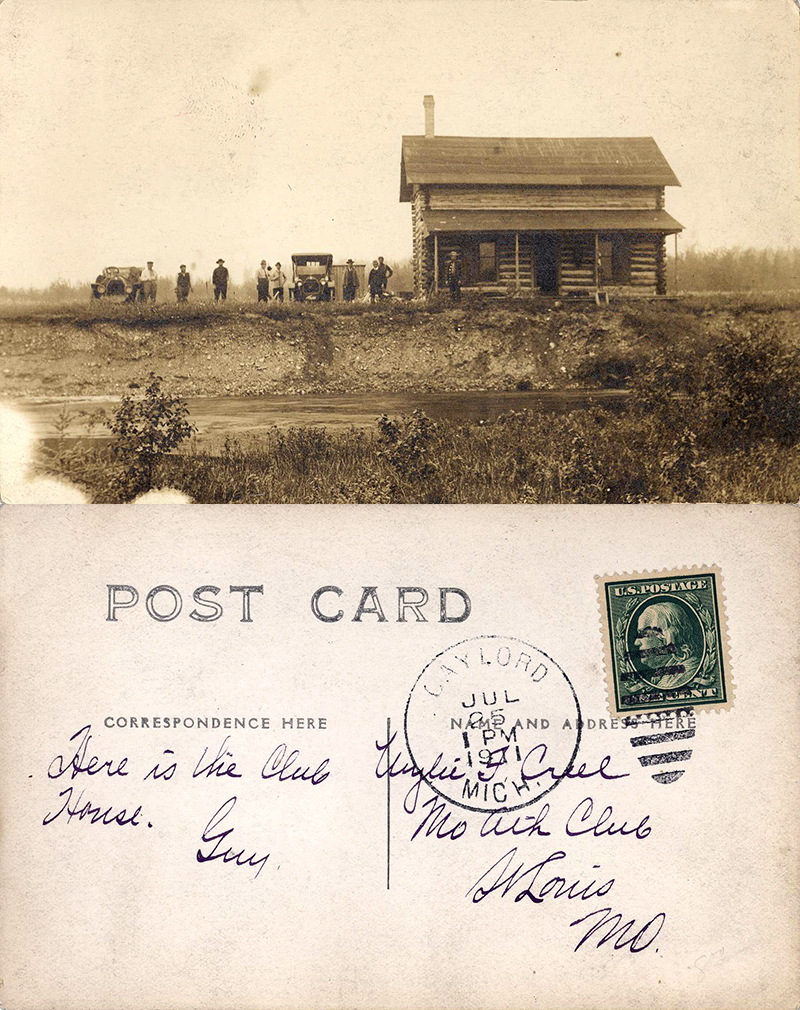 POST CARD
U.S. POSTAGE
ONE CENT
GAYLORD
JUL
25
1 PM
1911
MICH.
CORRESPONDENCE HERE
NAME AND ADDRESS HERE
Here is the Club
House.
Guy.
Wylie F. Creel
Mo Ath Club
St Louis
MO.